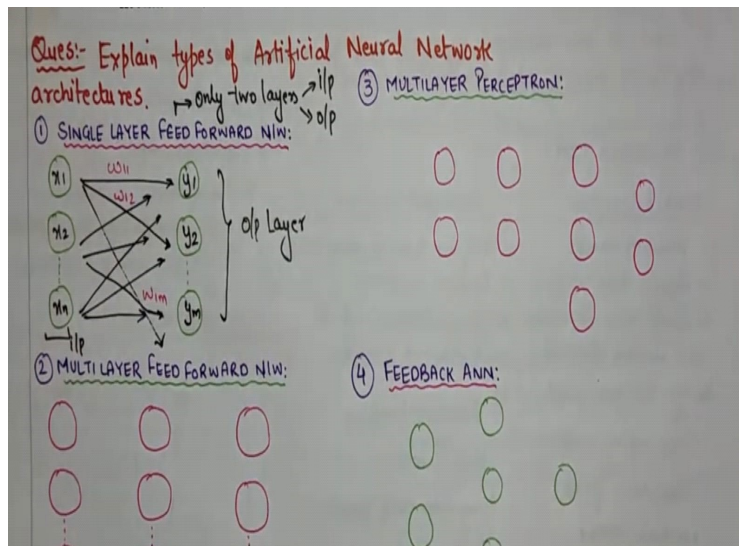 Ques:- Explain types of Artificial Neural Network
architectures.
→ only two layers → i/p
→ o/p
① SINGLE LAYER FEED FORWARD N/W:
x1 w11 y1
w12
x2 y2
o/p Layer
xn w1m ym
i/p
② MULTILAYER FEED FORWARD N/W:
③ MULTILAYER PERCEPTRON:
④ FEEDBACK ANN: